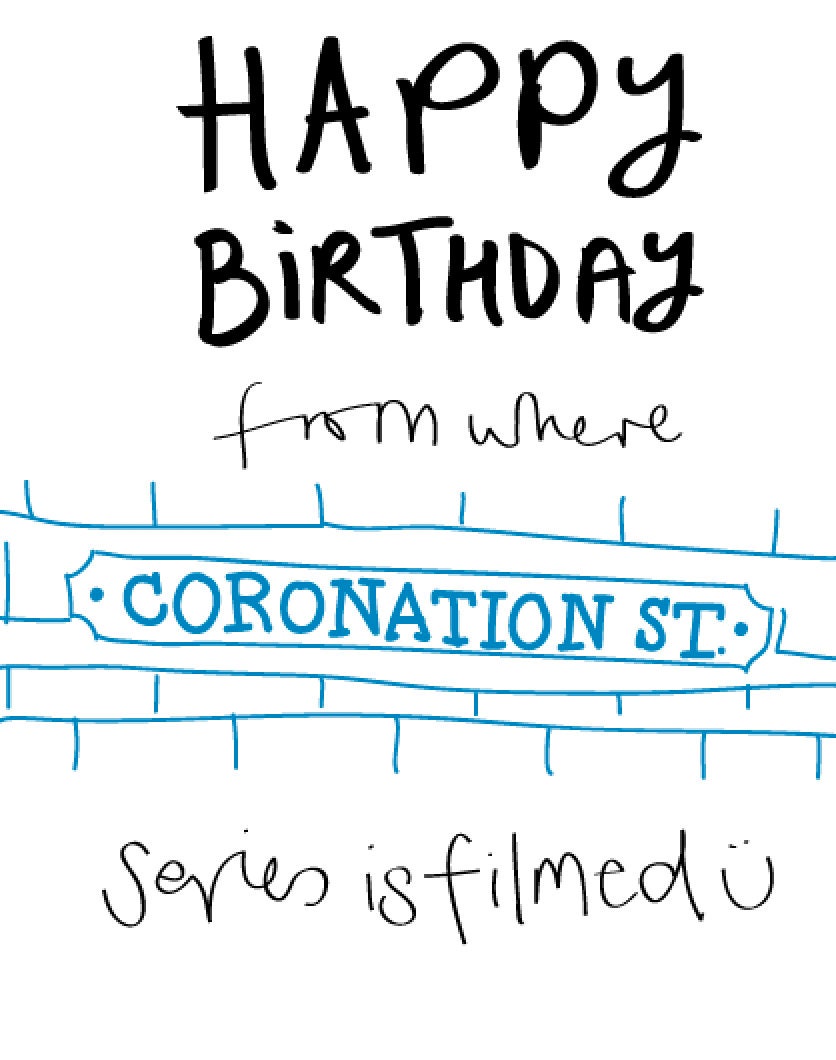 HAPPY
BiRTHDAY
from where
• CORONATION ST. •
series is filmed ü